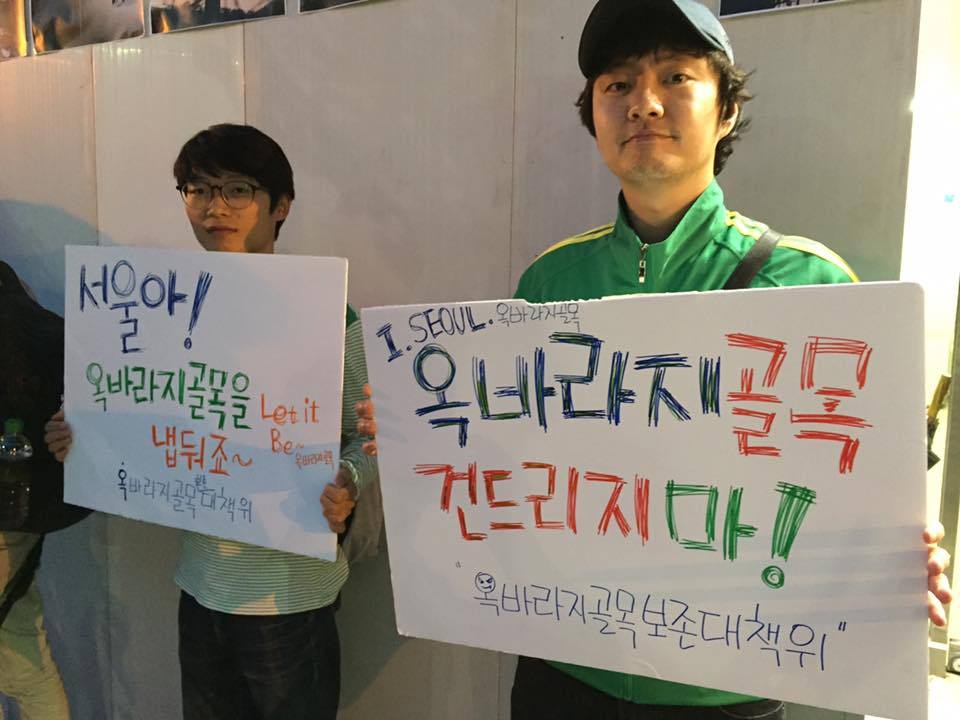 서울아!
옥바라지골목을
냅둬죠~
Let it
Be~
옥바라지골목
옥바라지골목보존대책위
I. SEOUL. 옥바라지골목
옥바라지골목
건드리지마!
"옥바라지골목보존대책위"